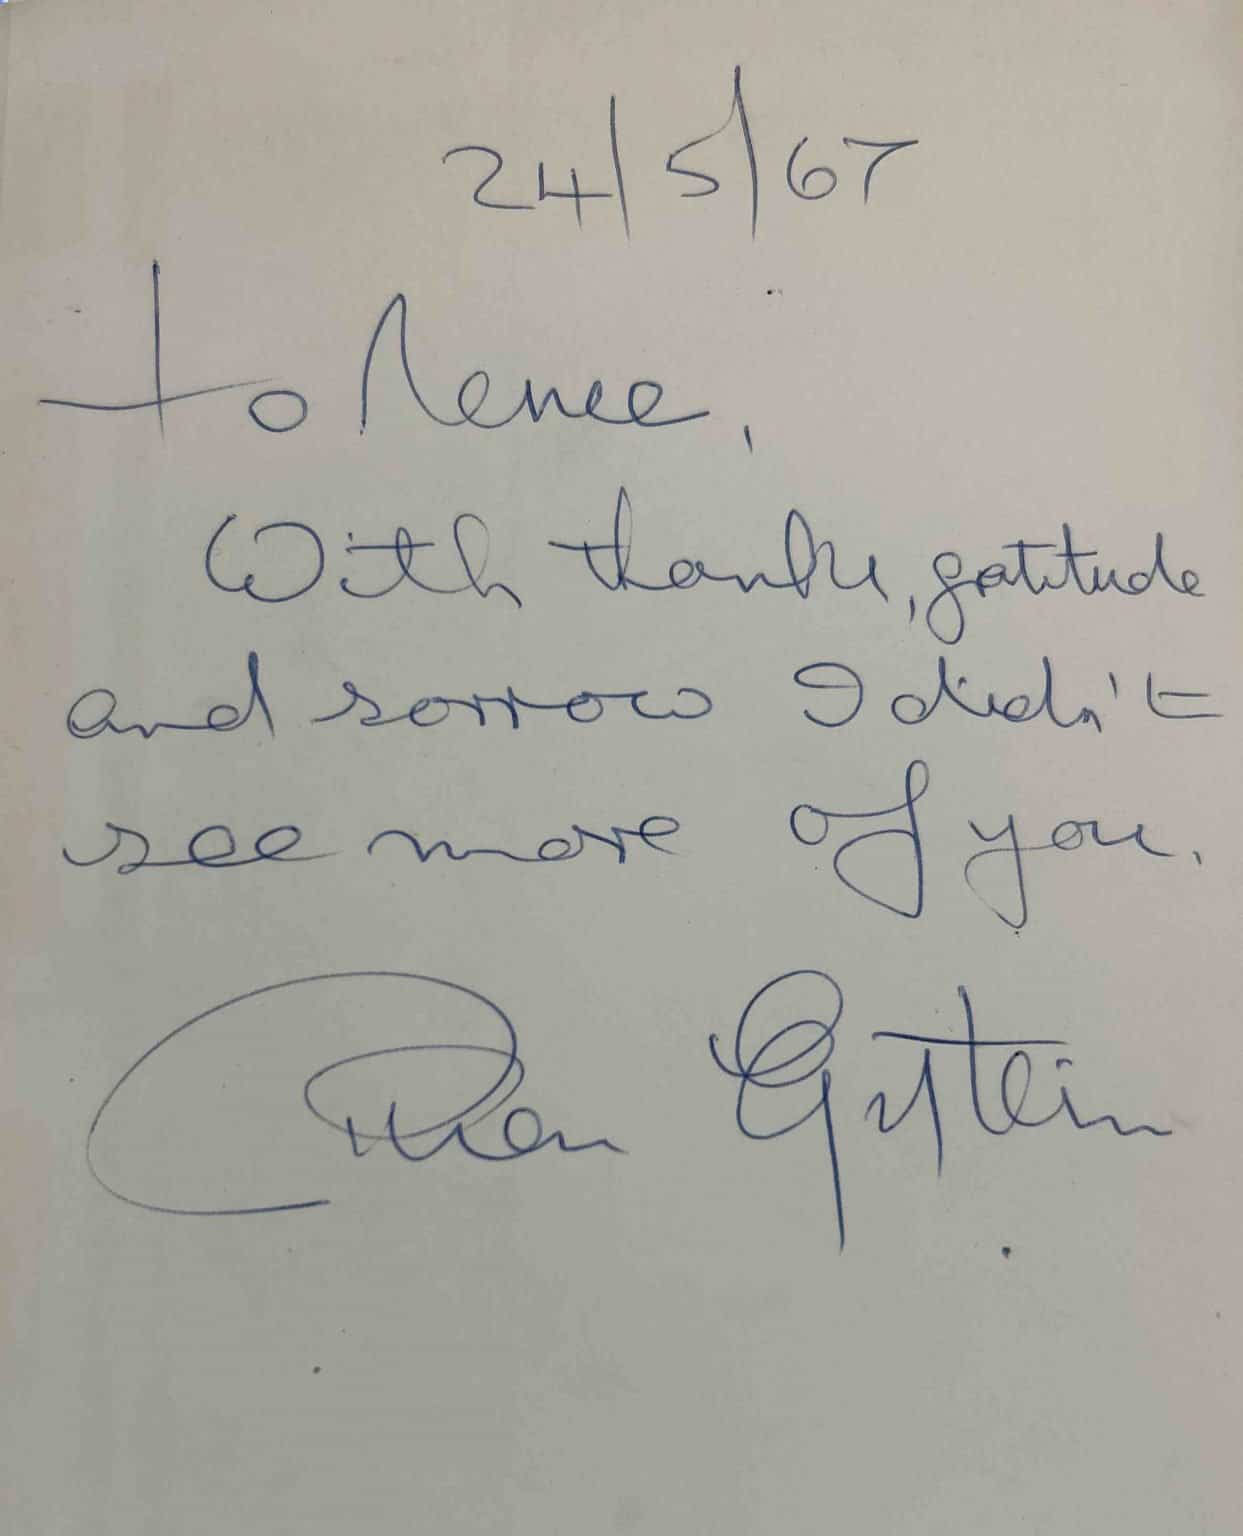 24/5/67
To Renee,
With thanks, gratitude
and sorrow I didn't
see more of you.
Brian Epstein